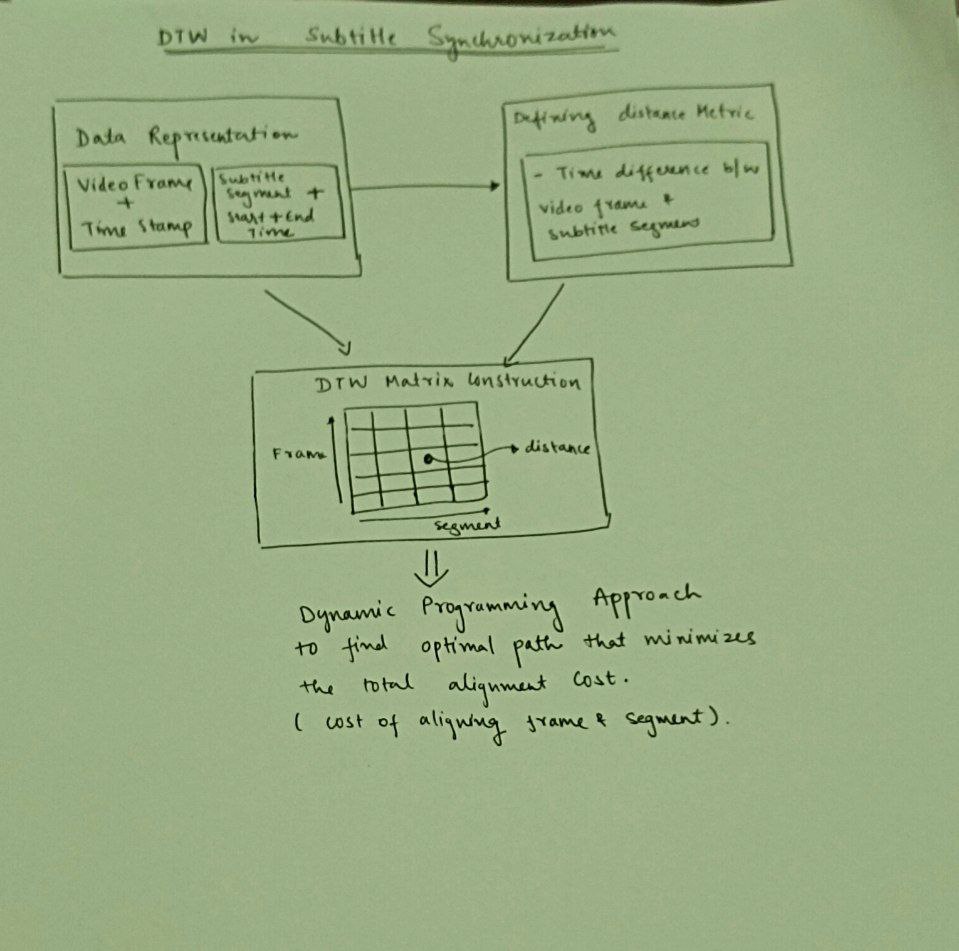 DTW in Subtitle Synchronization
Data Representation
Video Frame
+
Time Stamp
Subtitle
Segment +
Start + End
Time
Defining distance Metric
- Time difference b/w
video frame &
subtitle segment
DTW Matrix Construction
Frame
distance
segment
Dynamic Programming Approach
to find optimal path that minimizes
the total alignment cost.
( cost of aligning frame & segment).